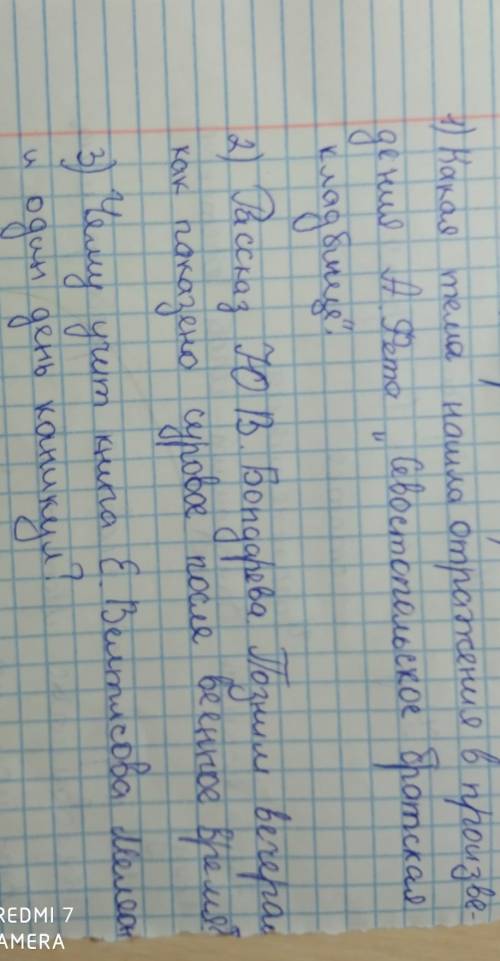 1) Какая тема нашла отражения в произве-
дения А. Фета "Севостопольское братская
кладбище".
2) Рассказ Ю В. Бондарева. Позним вечерам
как паказено суровое после веенное время?
3) Чему учит книга Е. Велтисова Милеон
и один день каникул?
REDMI 7
CAMERA